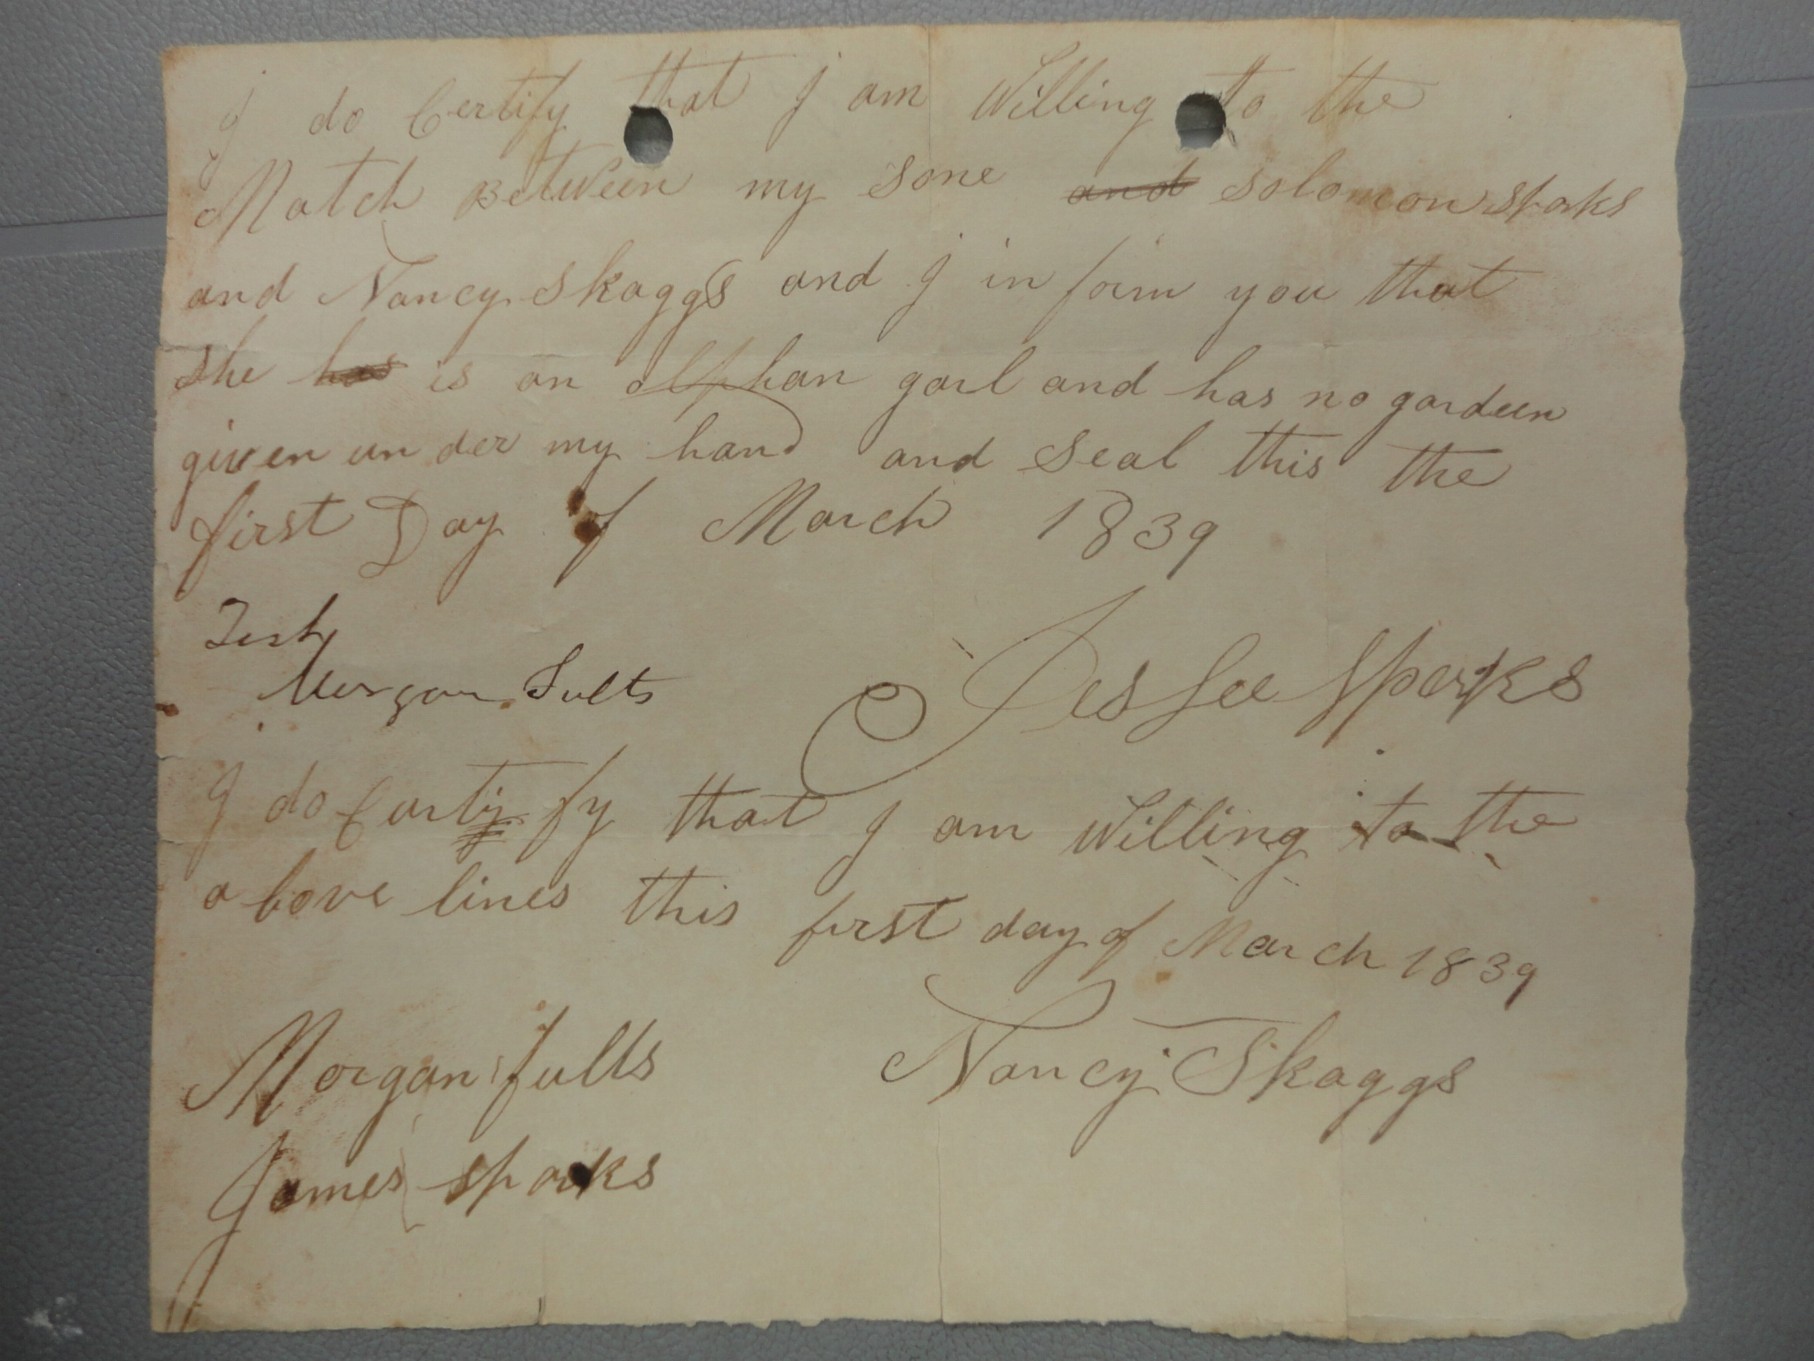 I do Certify that I am Willing to the
Match Between my sone and solomon sparks
and Nancy Skaggs and I in form you that
she has is an olphan garl and has no gardeen
given un der my hand and Seal this the
first Day of March 1839
Test
Morgan Fults
Jessee Sparks
I do Carti fy that I am Willing to the
a bove lines this first day of March 1839
Morgan fults
Nancy Skaggs
James sparks